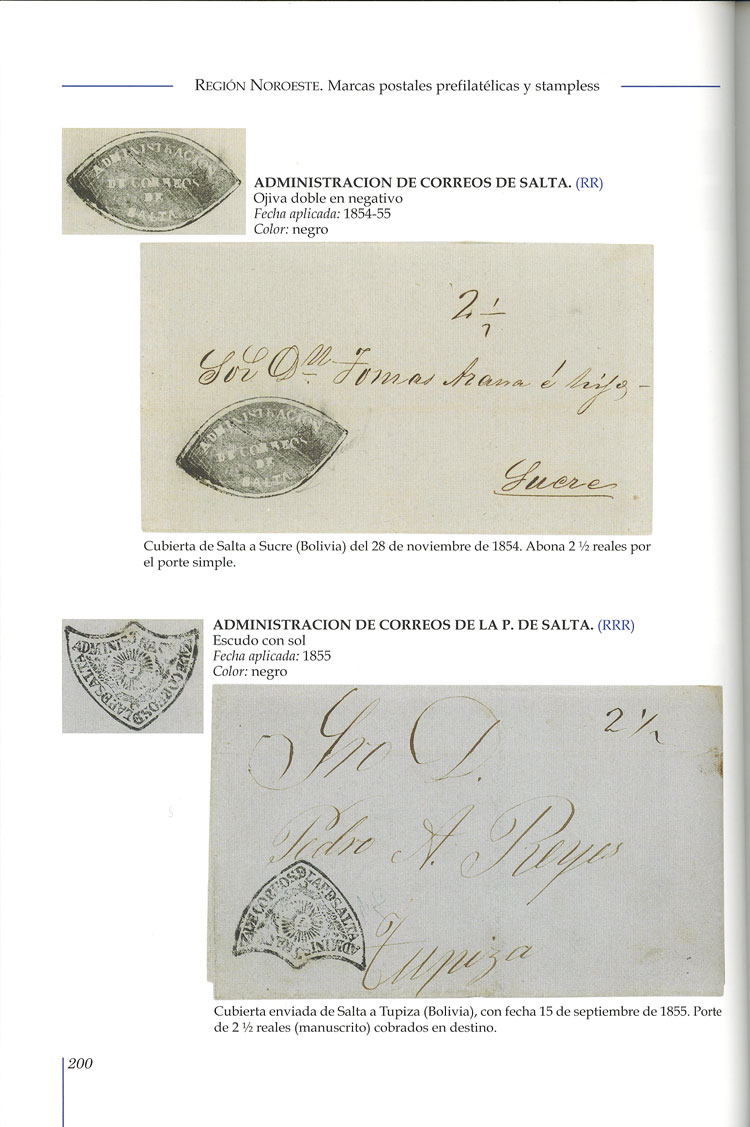 REGIÓN NOROESTE. Marcas postales prefilatélicas y stampless
ADMINISTRACION
DE CORREOS
DE
SALTA
ADMINISTRACION DE CORREOS DE SALTA. (RR)
Ojiva doble en negativo
Fecha aplicada: 1854-55
Color: negro
2 1/2
Sor Dn Tomas Arana é hijo
ADMINISTRACION
DE CORREOS
DE
SALTA
Sucre
Cubierta de Salta a Sucre (Bolivia) del 28 de noviembre de 1854. Abona 2 ½ reales por
el porte simple.
ADMINISTRACION DE CORREOS DE LA P. DE SALTA. (RRR)
Escudo con sol
Fecha aplicada: 1855
Color: negro
2 1/2
Sro D.
Pedro A. Reyes
Tupiza
Cubierta enviada de Salta a Tupiza (Bolivia), con fecha 15 de septiembre de 1855. Porte
de 2 ½ reales (manuscrito) cobrados en destino.
200